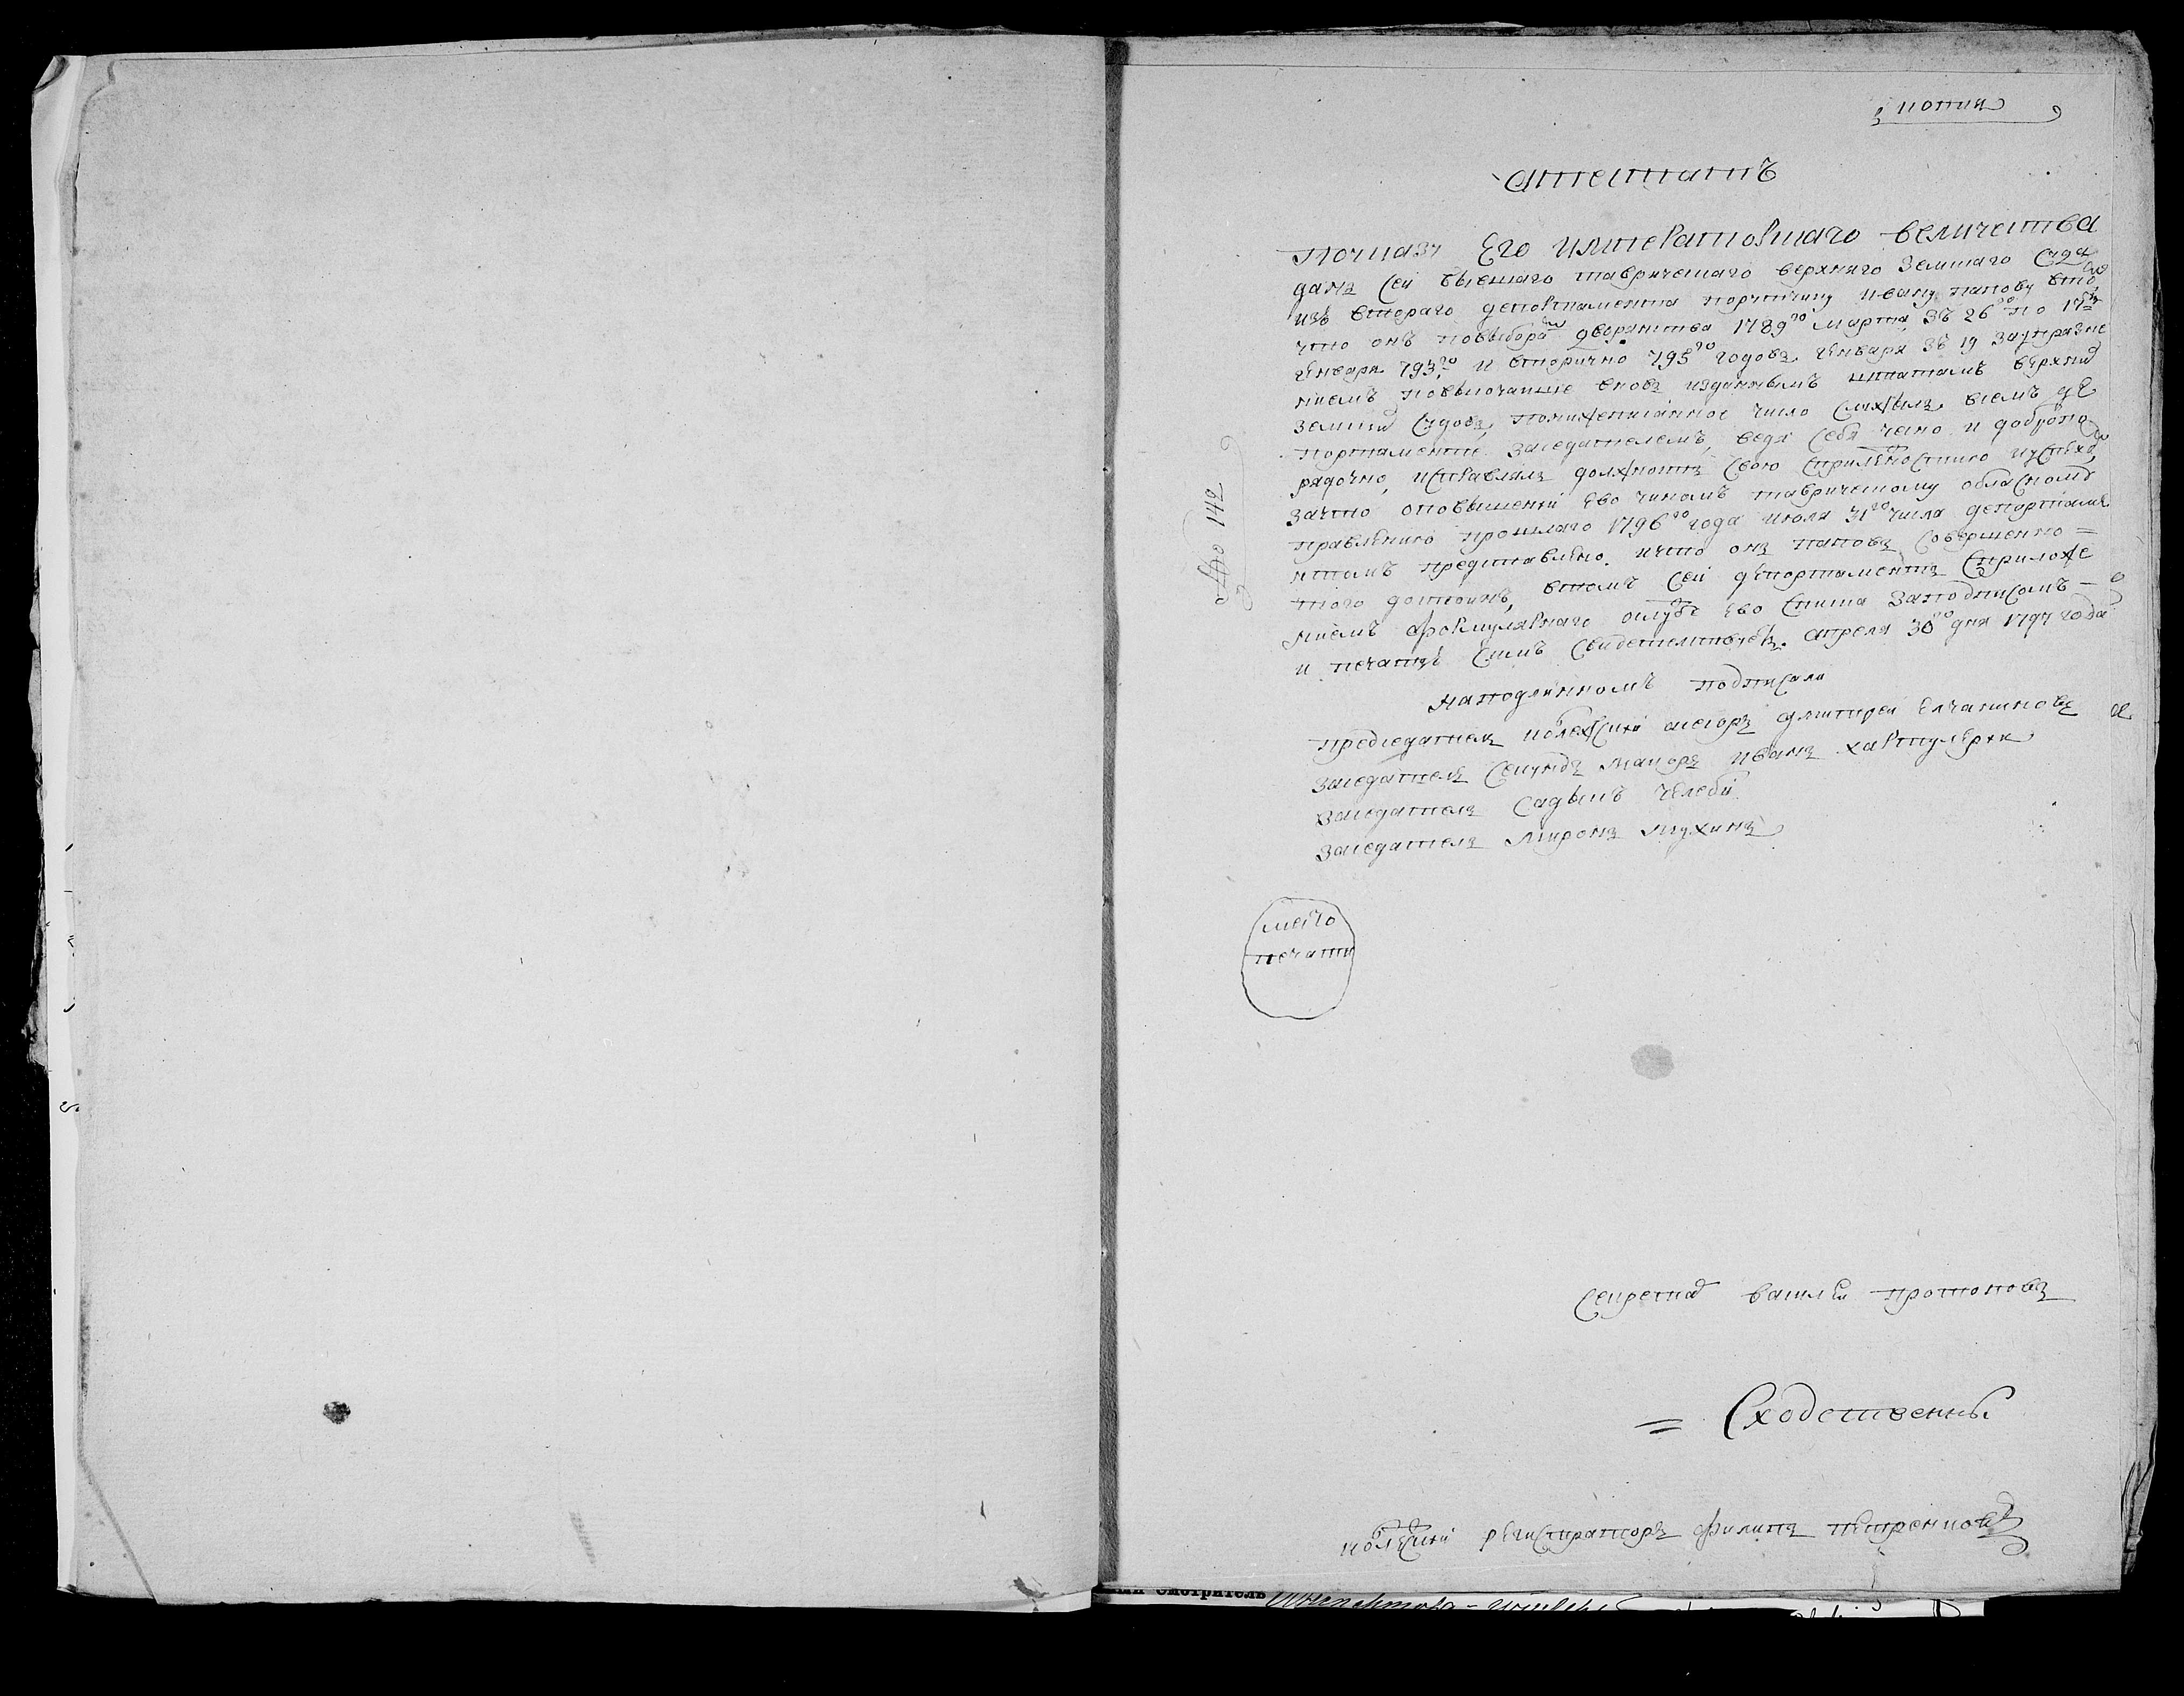 копия
Атестатъ
по указу Его императорскаго величества
данъ сей бывшаго таврическаго верхняго земскаго суда
изъ втораго депортамента порутчику ивану папову втомъ
что онъ повыбора дворянства 1789го марта зъ 26го по 17е
генваря 793го и вторично 795го годовъ генваря зъ 19 заупразне
ниемъ повысочайше вновь изданнымъ штатамъ верхних
земских судовъ, понижеписанное число служилъ всемъ де
портаменте заседателемъ, ведя себя чесно и добропо
рядочно, исправлялъ должность свою сприлежностию иуспехо
зачто оповышении ево чиномъ таврическому областному
правлению прошлаго 1796го года июля 31го числа депортаме
нтомъ представлено. ичто онъ паповъ совершенно =
того достоинъ, втомъ сей депортаментъ сприложе
ниемъ формулярнаго ослужбе ево списка заподписомъ –
и печатью симъ свидетельствуетъ. апреля 30го дня 1797 года
№ 142
наподлинномъ подписали
председатель колежский асесоръ дмитрей елчаниновъ
заседатель секундъ маиоръ иванъ
заседатель садыкъ челеби
заседатель миронъ мухинъ
место
печати
секретарь василей протопоповъ
= Сходственны
колежский регистраторъ филипъ петренковъ
смотритель